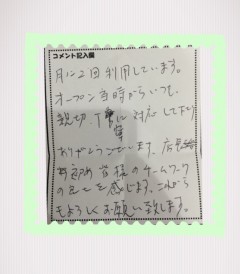 コメント記入欄
月に2回利用しています。
オープン当時からいつも
親切、丁寧に対応して下さり
ありがとうございます。店長
皆様のチームワーク
の良さを感じます。これから
もよろしくお願い致します。